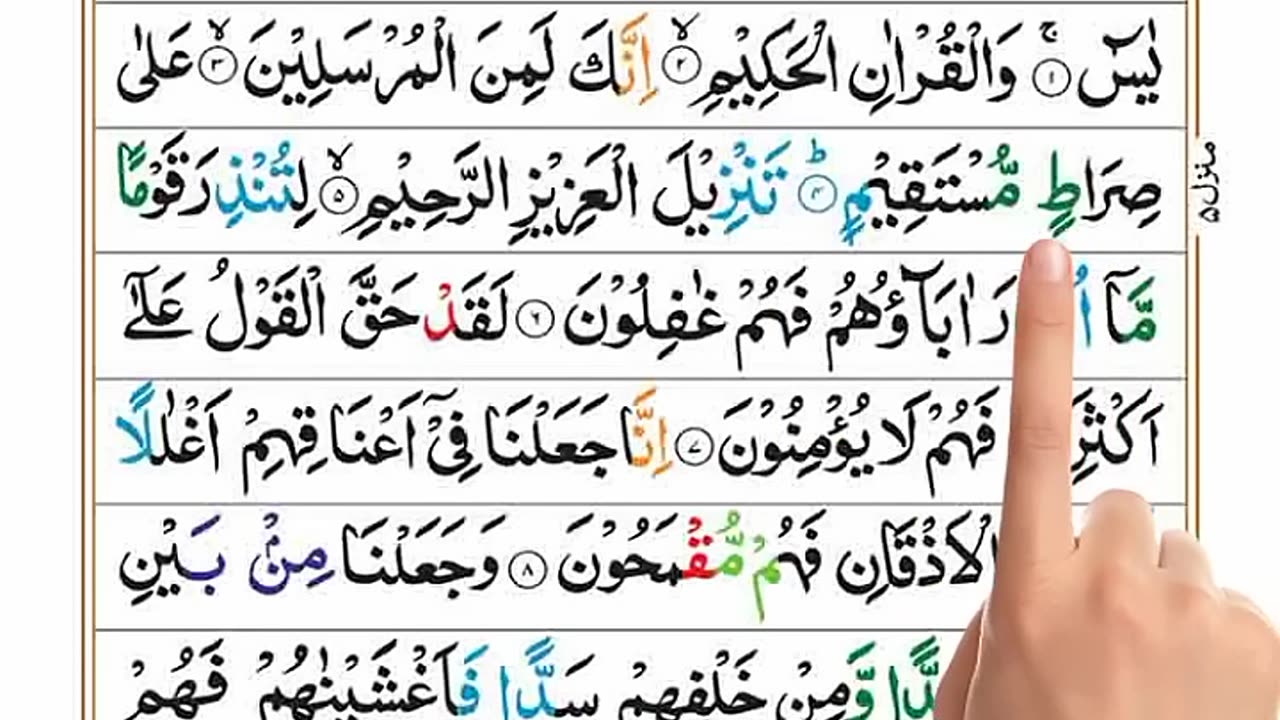 يٰسٓ ۚ ﴿۱﴾ وَالْقُرْاٰنِ الْحَكِيْمِ ۙ ﴿۲﴾ اِنَّكَ لَمِنَ الْمُرْسَلِيْنَ ۙ ﴿۳﴾ عَلٰى
صِرَاطٍ مُّسْتَقِيْمٍ ؕ ﴿۴﴾ تَنْزِيْلَ الْعَزِيْزِ الرَّحِيْمِ ۙ ﴿۵﴾ لِتُنْذِرَ قَوْمًا
مَّاۤ رَ اٰبَآؤُهُمْ فَهُمْ غٰفِلُوْنَ ﴿۶﴾ لَقَدْ حَقَّ الْقَوْلُ عَلٰٓى
اَكْثَرِ فَهُمْ لَا يُؤْمِنُوْنَ ﴿۷﴾ اِنَّا جَعَلْنَا فِيْۤ اَعْنَاقِهِمْ اَغْلٰلًا
الْاَذْقَانِ فَهُمْ مُّقْمَحُوْنَ ﴿۸﴾ وَجَعَلْنَا مِنْۢ بَيْنِ
وَّمِنْ خَلْفِهِمْ سَدًّا فَاَغْشَيْنٰهُمْ فَهُمْ
منزل ۵